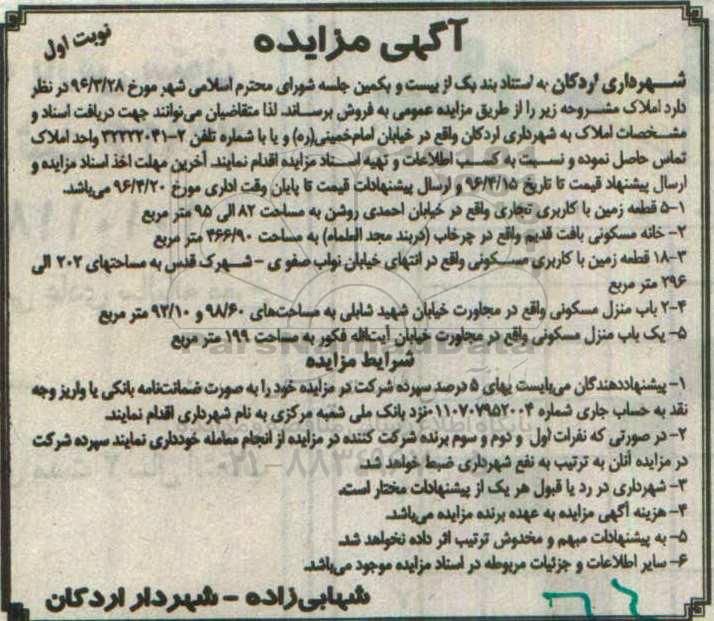 آگهی مزایده
نوبت اول
شهرداری اردکان به استناد بند یک از بیست و یکمین جلسه شورای محترم اسلامی شهر مورخ ۹۶/۳/۲۸ در نظر
دارد املاک مشروحه زیر را از طریق مزایده عمومی به فروش برساند. لذا متقاضیان می‌توانند جهت دریافت اسناد و
مشخصات املاک به شهرداری اردکان واقع در خیابان امام‌خمینی(ره) و یا با شماره تلفن ۲-۳۲۲۲۲۰۴۱ واحد املاک
تماس حاصل نموده و نسبت به کسب اطلاعات و تهیه اسناد مزایده اقدام نمایند. آخرین مهلت اخذ اسناد مزایده و
ارسال پیشنهاد قیمت تا تاریخ ۹۶/۴/۱۵ و ارسال پیشنهادات قیمت تا پایان وقت اداری مورخ ۹۶/۴/۲۰ می‌باشد.
۱-۵ قطعه زمین با کاربری تجاری واقع در خیابان احمدی روشن به مساحت ۸۲ الی ۹۵ متر مربع
۲- خانه مسکونی بافت قدیم واقع در چرخاب (دربند مجد العلماء) به مساحت ۴۶۶/۹۰ متر مربع
۳-۱۸ قطعه زمین با کاربری مسکونی واقع در انتهای خیابان نواب صفوی - شهرک قدس به مساحتهای ۲۰۲ الی
۲۹۶ متر مربع
۴-۲ باب منزل مسکونی واقع در مجاورت خیابان شهید شابلی به مساحت‌های ۹۸/۶۰ و ۹۲/۱۰ متر مربع
۵- یک باب منزل مسکونی واقع در مجاورت خیابان آیت‌الله فکور به مساحت ۱۹۹ متر مربع
شرایط مزایده
۱- پیشنهاددهندگان می‌بایست بهای ۵ درصد سپرده شرکت در مزایده خود را به صورت ضمانت‌نامه بانکی یا واریز وجه
نقد به حساب جاری شماره ۰۱۱۰۷۰۷۹۵۲۰۰۴ نزد بانک ملی شعبه مرکزی به نام شهرداری اقدام نمایند.
۲- در صورتی که نفرات اول و دوم و سوم برنده شرکت کننده در مزایده از انجام معامله خودداری نمایند سپرده شرکت
در مزایده آنان به ترتیب به نفع شهرداری ضبط خواهد شد.
۳- شهرداری در رد یا قبول هر یک از پیشنهادات مختار است.
۴- هزینه آگهی مزایده به عهده برنده مزایده می‌باشد.
۵- به پیشنهادات مبهم و مخدوش ترتیب اثر داده نخواهد شد.
۶- سایر اطلاعات و جزئیات مربوطه در اسناد مزایده موجود می‌باشد.
شهابی‌زاده - شهردار اردکان